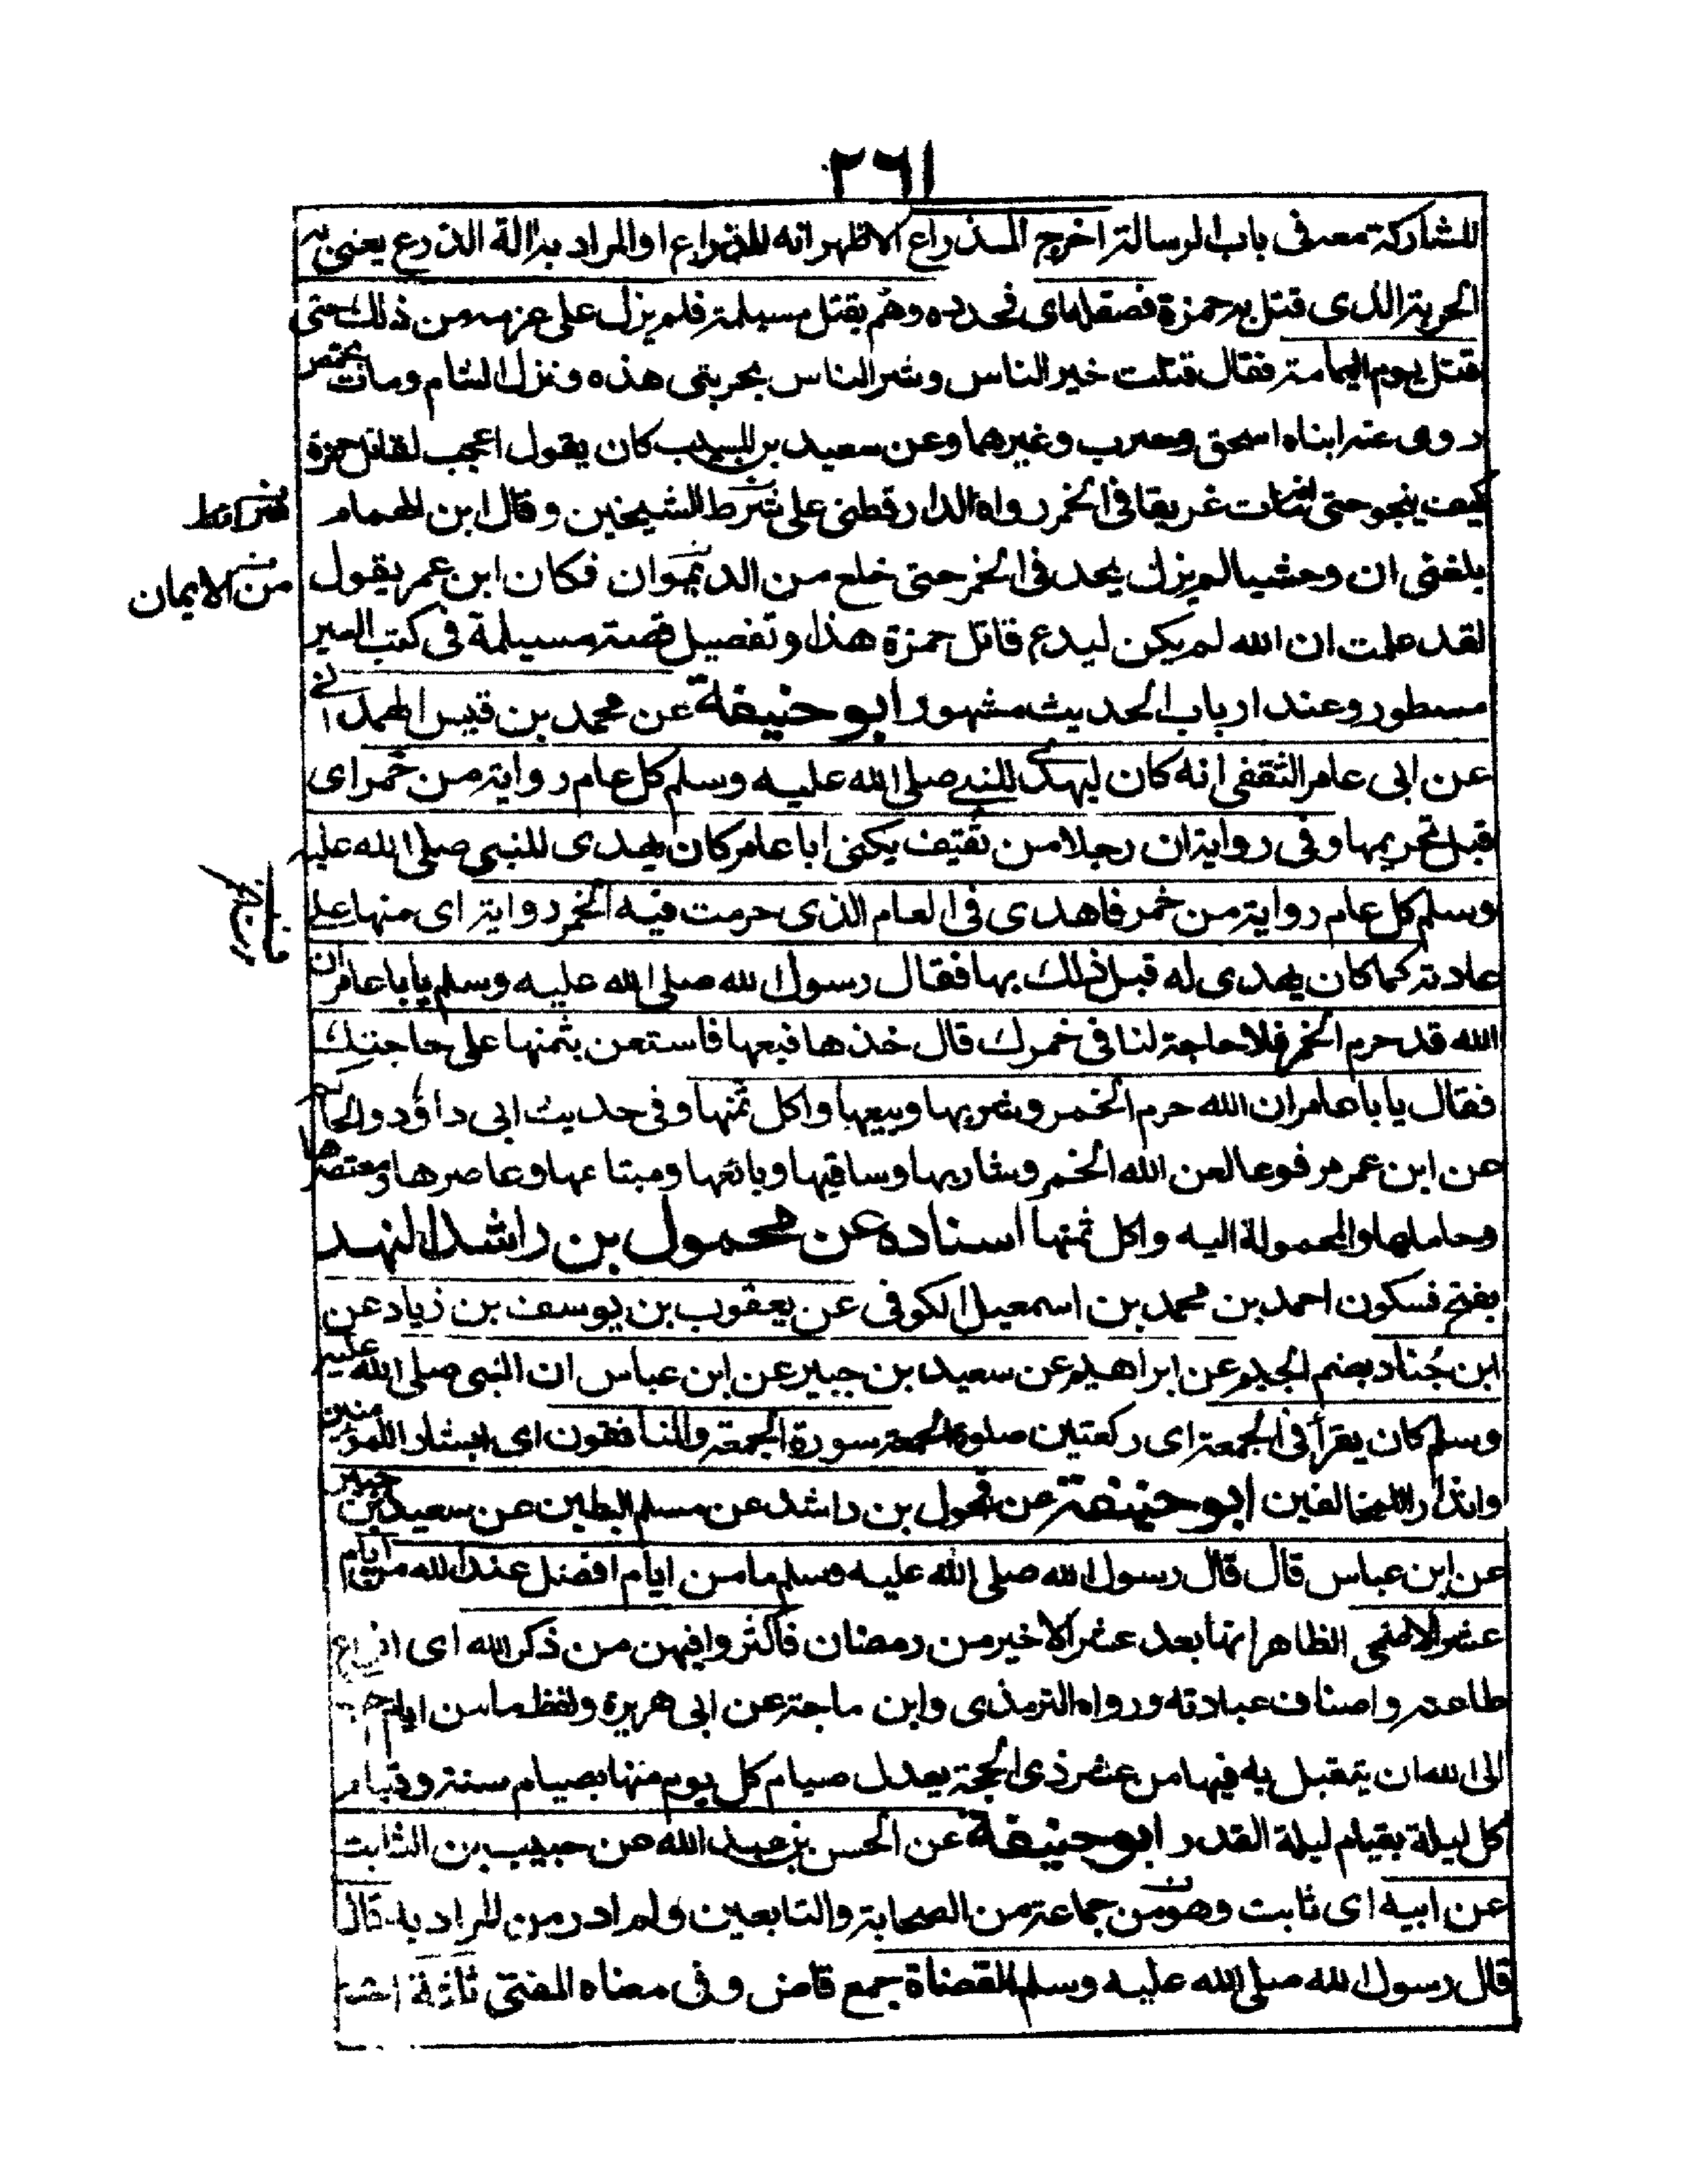 ٢٦١
للمشاركة معه فى باب الرسالة اخرج المذراع الاظهر انه للذراع او المراد به الة الذرع يعنى به
الحربة الذى قتل به حمزة فصقلها اى فى حده وهم بقتل مسيلمة فلم يزل على عزمه من ذلك حتى
قتل يوم اليمامة فقال قتلت خير الناس وشر الناس بحربتى هذه ونزل الشام ومات بحمص
روى عنه ابناه اسحق وحرب وغيرهما وعن سعيد بن المسيب كان يقول اعجب لقاتل حمزة
كيف ينجو حتى انه مات غريقا فى الخمر رواه الدارقطنى على شرط الشيخين وقال ابن الهمام
بلغنى ان وحشيا لم يزل يحد فى الخمر حتى خلع من الديوان فكان ابن عمر يقول
من الايمان
لقد علمت ان الله لم يكن ليدع قاتل حمزة هذا وتفصيل قصة مسيلمة فى كتب السير
مسطور وعند ارباب الحديث مشهور ابو حنيفة عن محمد بن قيس الهمدانى
عن ابى عامر الثقفى انه كان ليهدى للنبى صلى الله عليه وسلم كل عام رواية من خمر اى
قبل تحريمها وفى رواية ان رجلا من ثقيف يكنى ابا عامر كان يهدى للنبى صلى الله عليه
وسلم كل عام رواية من خمر فاهدى فى العام الذى حرمت فيه الخمر رواية اى منها على
عادته كما كان يهدى له قبل ذلك بها فقال رسول الله صلى الله عليه وسلم يا ابا عامر ان
الله قد حرم الخمر فلا حاجة لنا فى خمرك قال خذها فبعها فاستعن بثمنها على حاجتك
فقال يا ابا عامر ان الله حرم الخمر وشربها وبيعها واكل ثمنها وفى حديث ابى داؤد والحاكم
عن ابن عمر مرفوعا لعن الله الخمر وشاربها وساقيها وبائعها ومبتاعها وعاصرها ومعتصرها
وحاملها والمحمولة اليه واكل ثمنها اسناده عن محمول بن راشد النهد
بفتح فسكون احمد بن محمد بن اسمعيل الكوفى عن يعقوب بن يوسف بن زياد عن
ابن جُناد بضم الجيم عن ابراهيم عن سعيد بن جبير عن ابن عباس ان النبى صلى الله عليه
وسلم كان يقرأ فى الجمعة اى ركعتين صلوة الجمعة سورة الجمعة والمنافقون اى ابشار اللمؤمنين
وانذار اللمخالفين ابو حنيفة عن محول بن راشد عن مسلم البطين عن سعيد بن جبير
عن ابن عباس قال قال رسول الله صلى الله عليه وسلم ما من ايام افضل عند الله من ايام
عشر الاضحى الظاهر انها بعد عشر الاخير من رمضان فاكثروا فيهن من ذكر الله اى انواع
طاعته واصناف عبادته ورواه الترمذى وابن ماجة عن ابى هريرة ولفظ ما من ايام
الى الله ان يتقبل به فيها من عشر ذى الحجة يعدل صيام كل يوم منها بصيام سنة وقيام
كل ليلة بقيام ليلة القدر ابو حنيفة عن الحسن بن عبيد الله عن حبيب بن الثابت
عن ابيه اى ثابت وهو من جماعة من الصحابة والتابعين ولم ادر من المراد به قال
قال رسول الله صلى الله عليه وسلم القضاة جمع قاض وفى معناه المفتى ثلثة